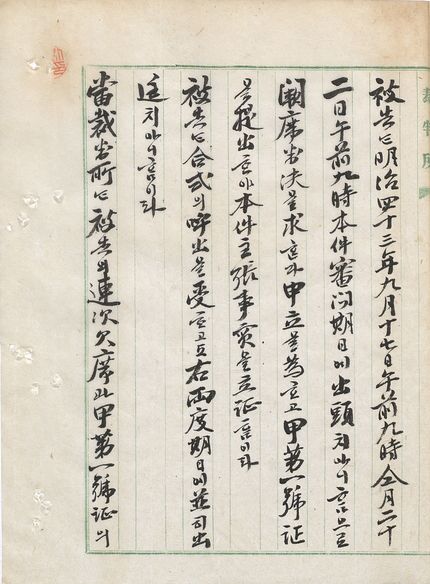 被告는明治四十三年九月十七日午前九時仝月二十
二日午前九時本件審問期日에出頭치아니ᄒᆞᆷ으로
闕席判決을求ᄒᆞᆫ다申立을為ᄒᆞ고甲第一號証
을提出ᄒᆞ야本件主張事實을立証ᄒᆞᆷ이라
被告는合式의呼出을受ᄒᆞ고도右両度期日에並히出
廷치아니ᄒᆞᆷ이라
當裁判所는被告의連次欠席과甲第一號証의